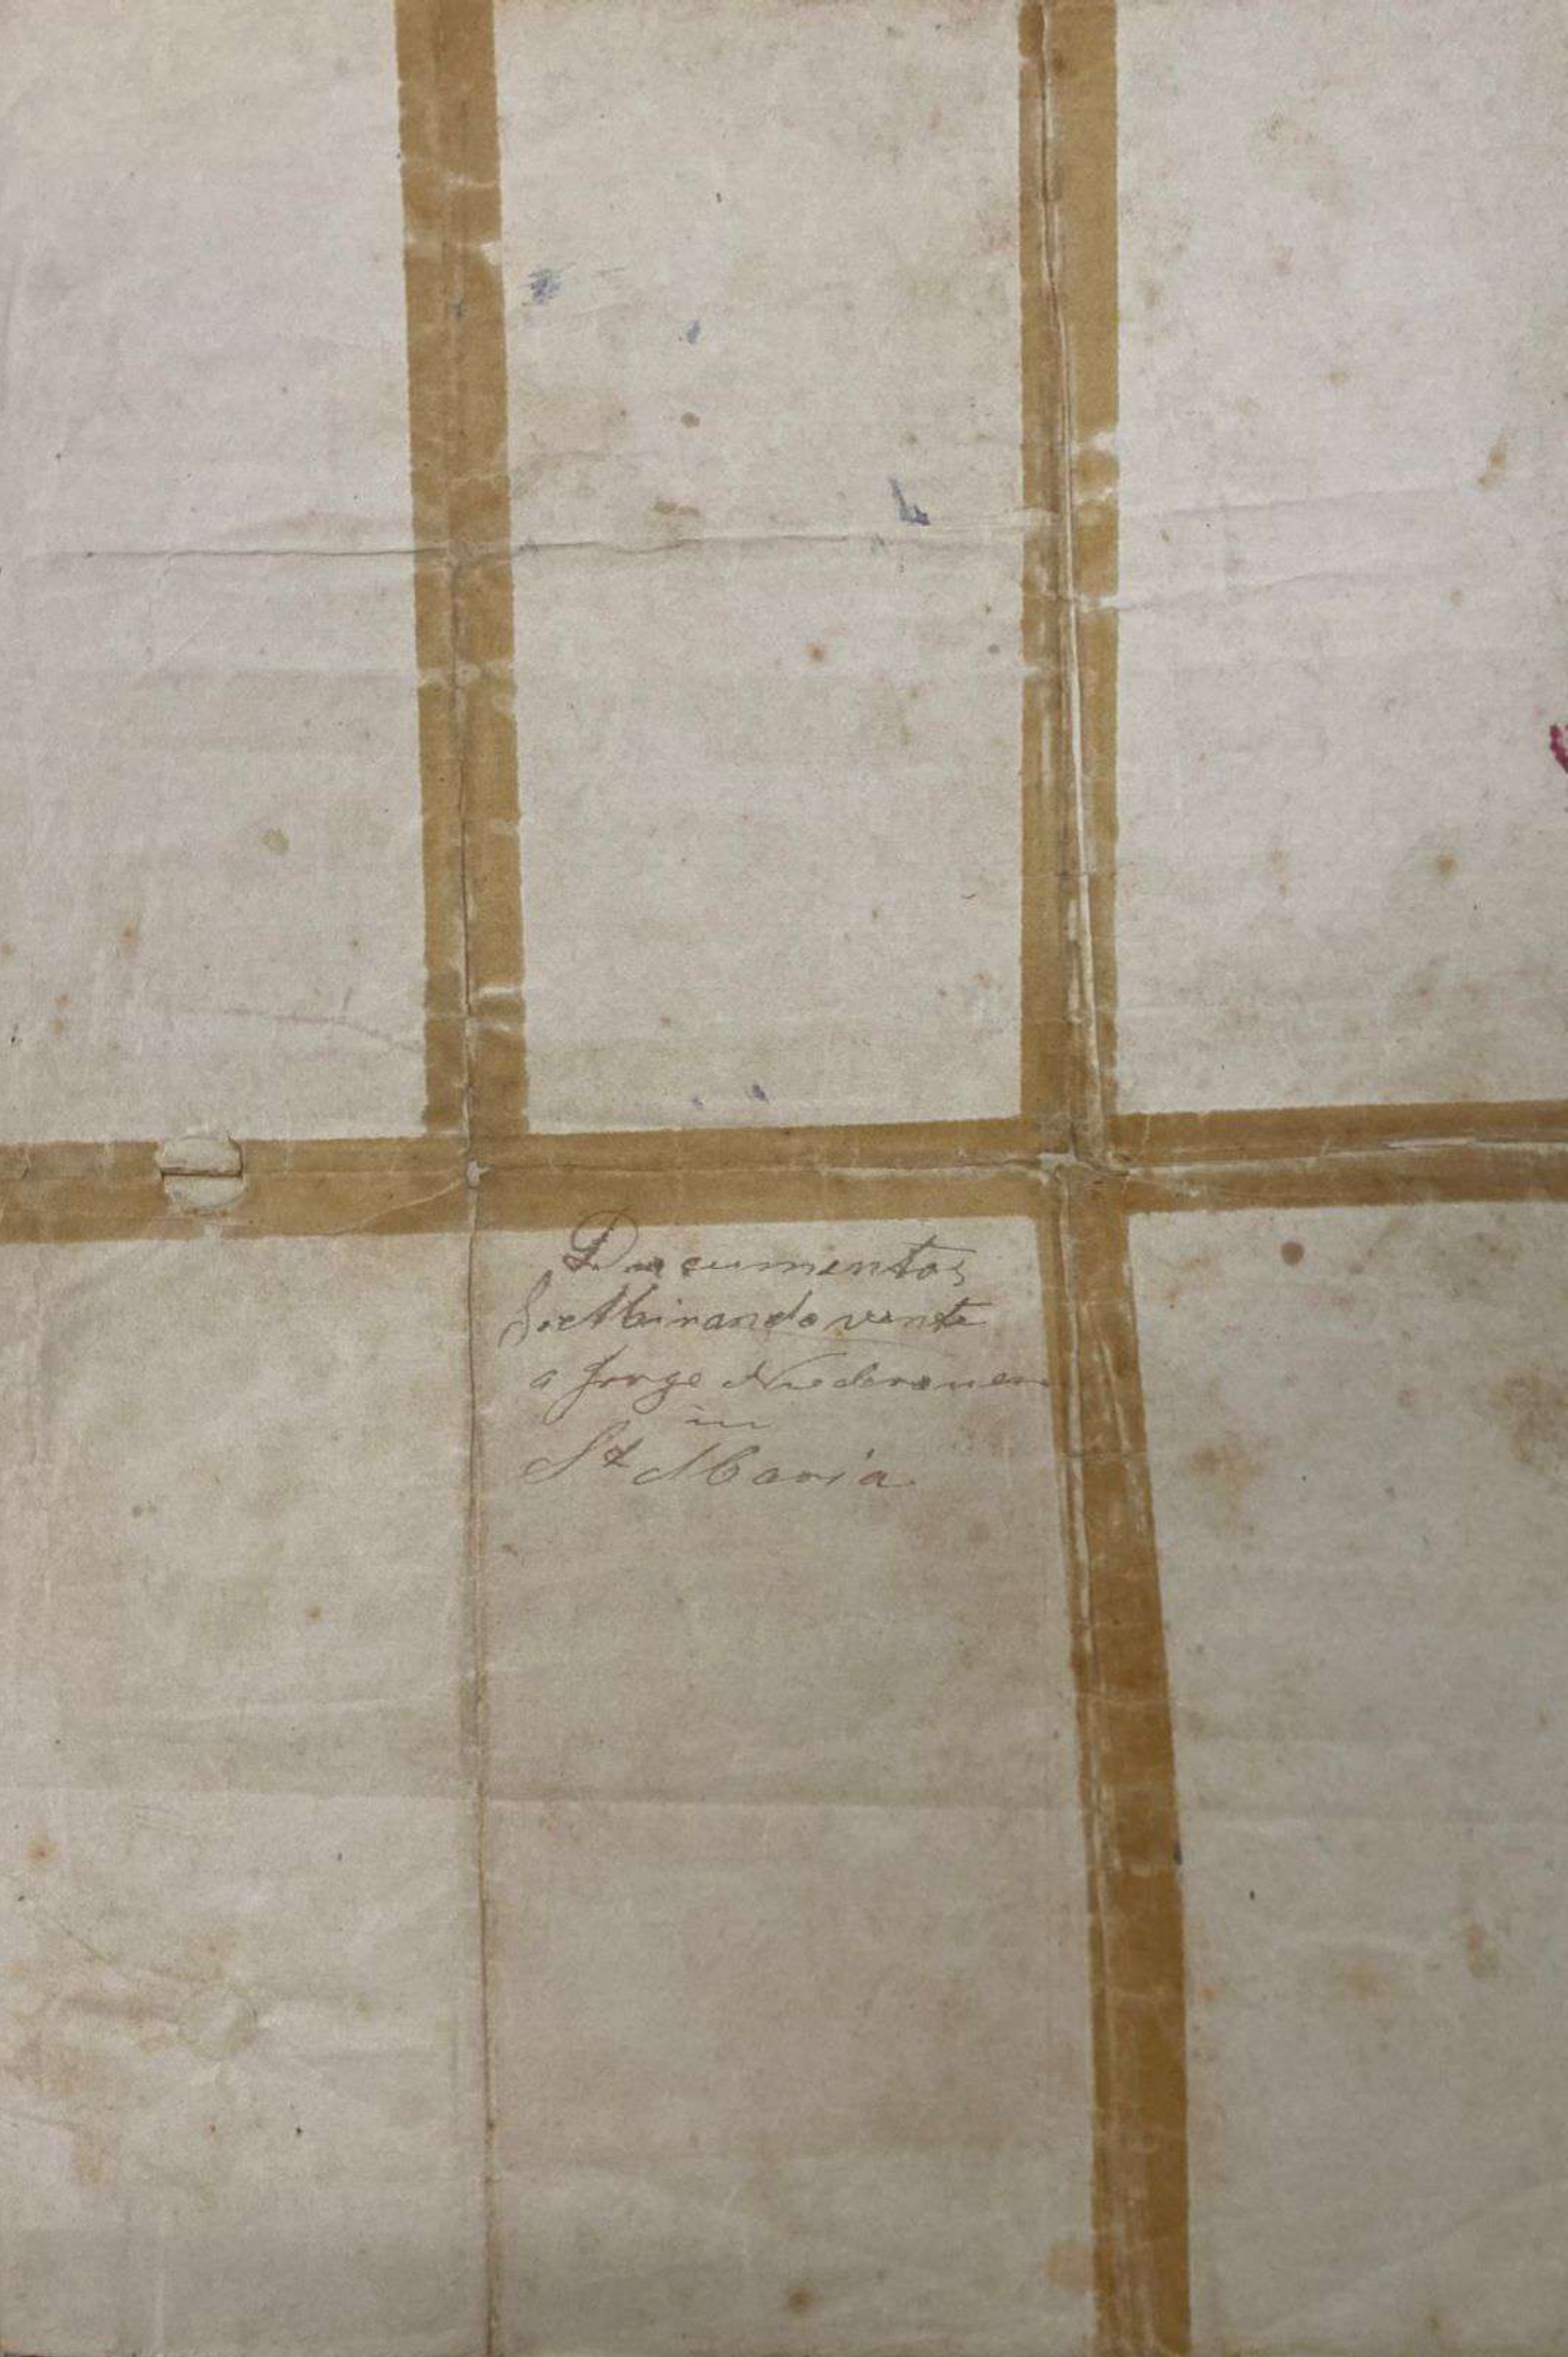 Documentos
Miranda vente
a Jorge Niederauer
in
St Maria